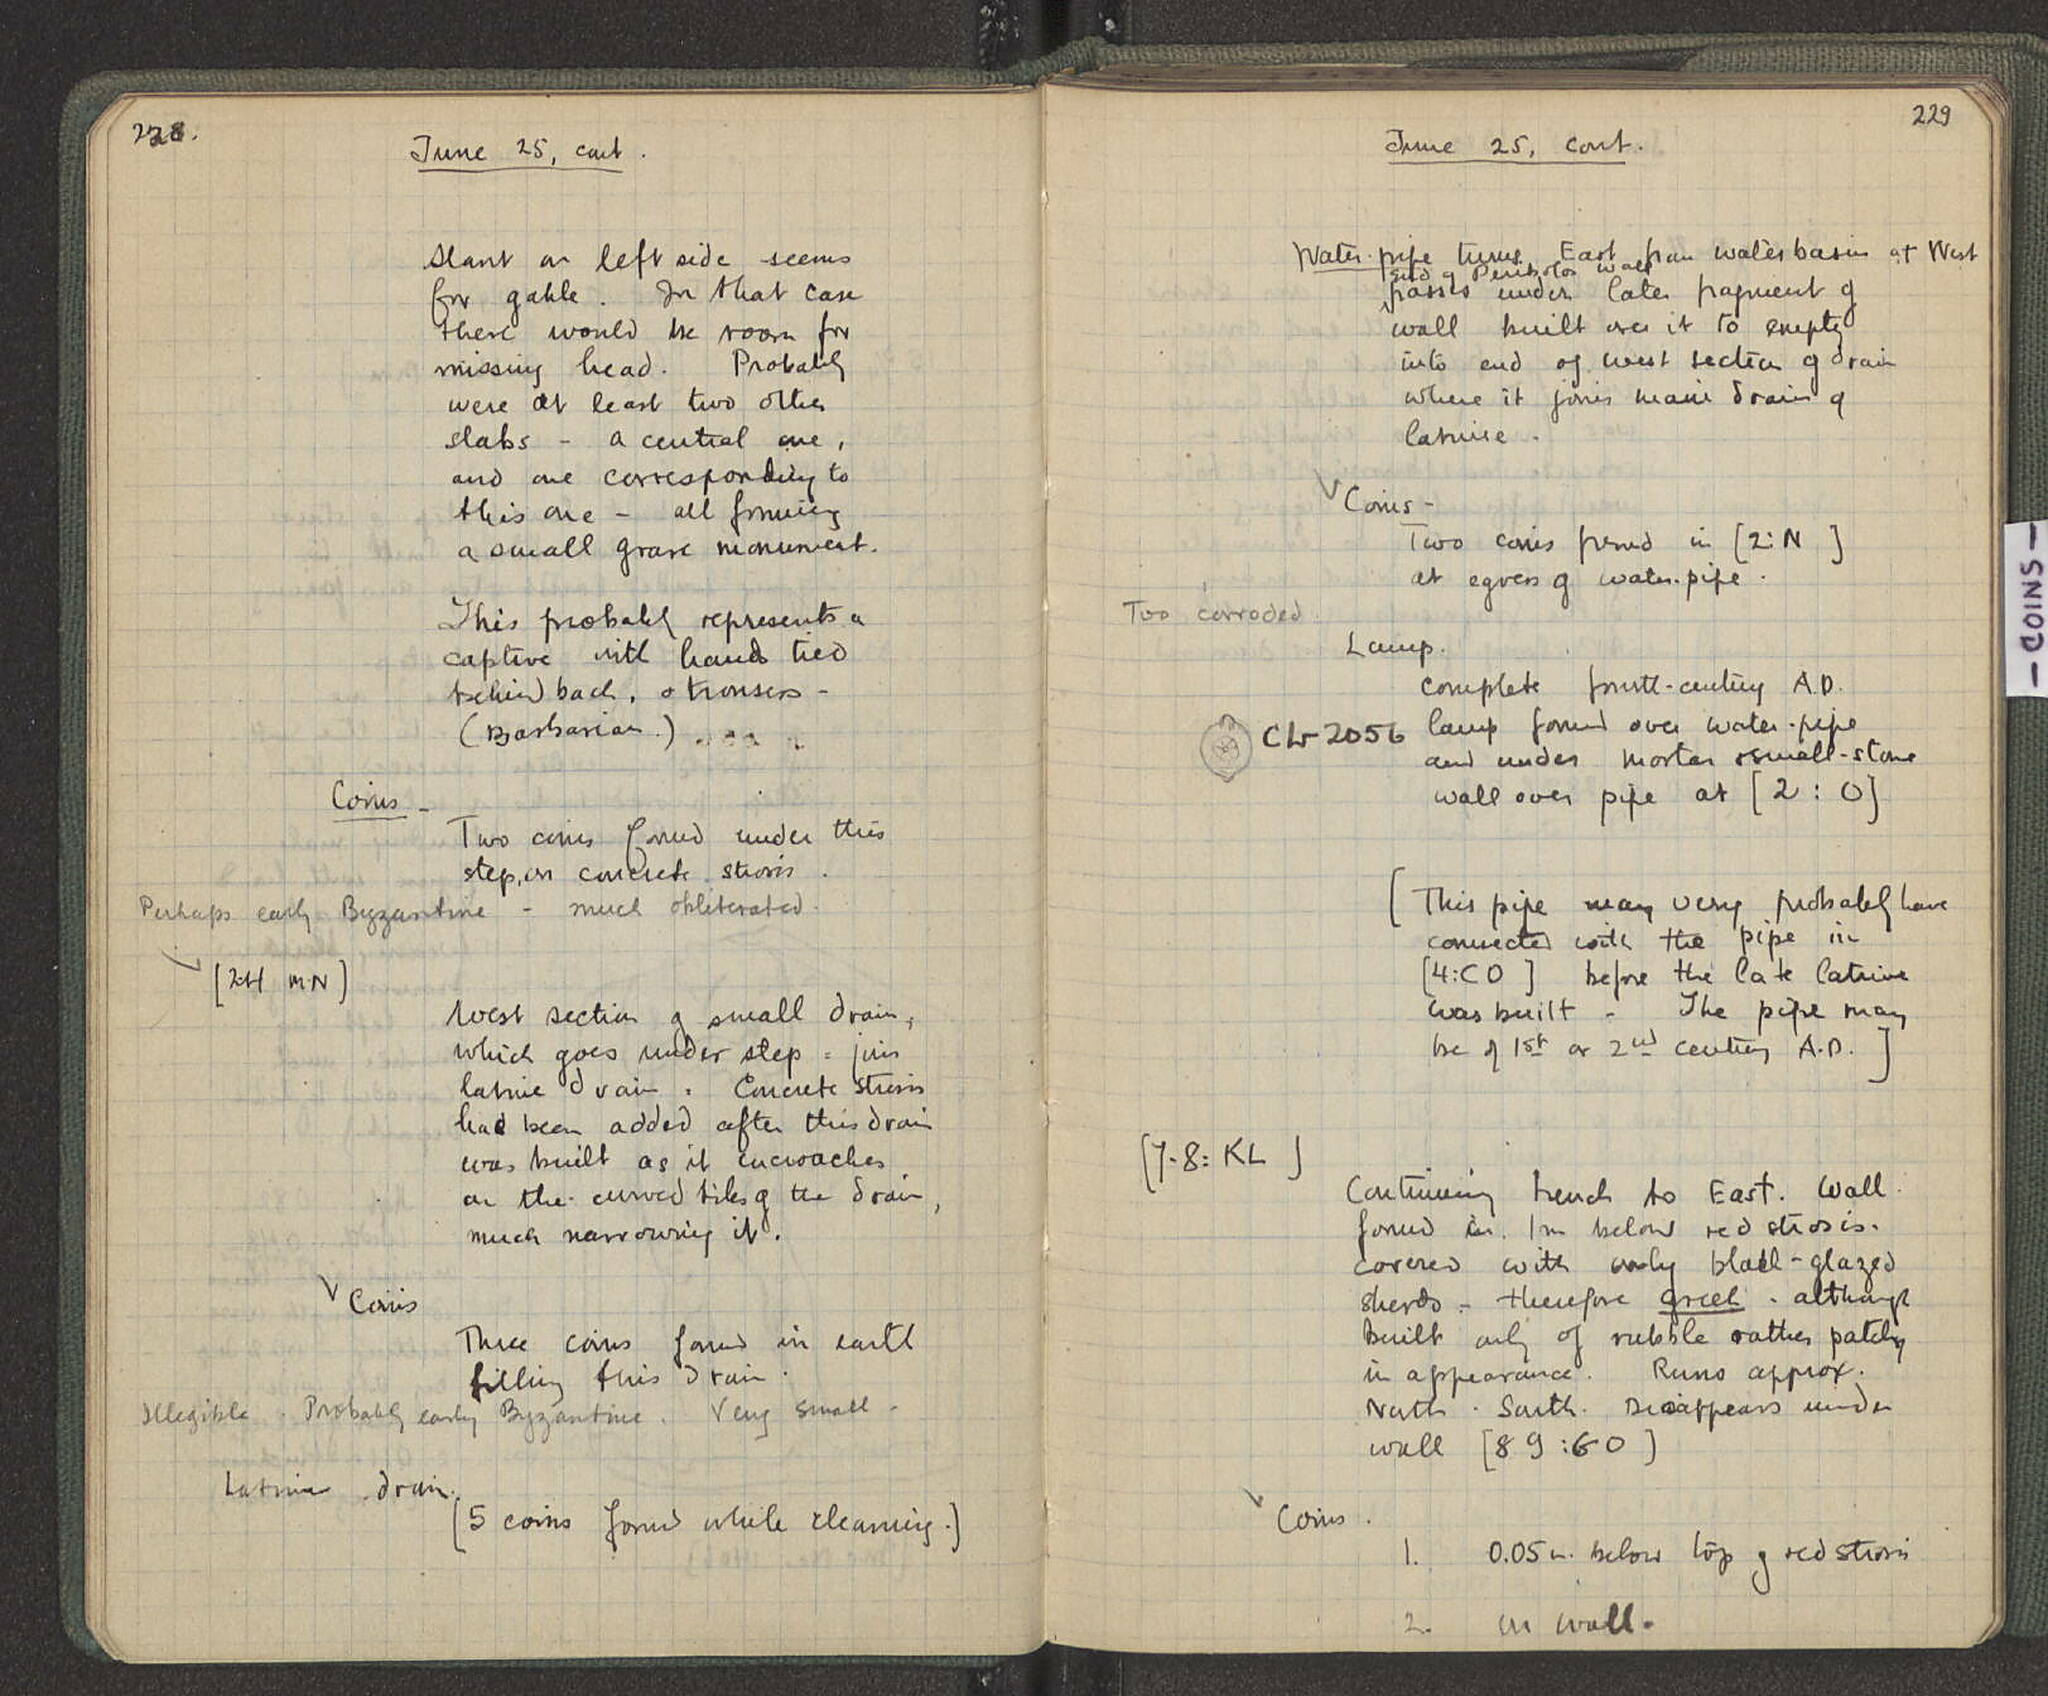 228.
June 25, cont.
Slant on left side seems
for gable. In that case
there would be room for
missing head. Probably
were at least two other
slabs - a central one,
and one corresponding to
this one - all forming
a small grave monument.
This probably represents a
captive with hands tied
behind back, & trousers -
(Barbarian.)
Coins -
Two coins found under this
step, on concrete strosis.
Perhaps early Byzantine - much obliterated.
[2:H M-N]
West section of small drain,
which goes under step = joins
latrine drain. Concrete strosis
had been added after this drain
was built as it encroaches
on the curved tiles of the drain,
much narrowing it.
Coins
Three coins found in earth
filling this drain.
Illegible. Probably early Byzantine. Very small -
Latrine drain.
[5 coins found while cleaning.]
229
June 25, cont.
Water-pipe turns East from water basin at West
end of Peribolos wall
passes under later fragment of
wall built over it to empty
into end of west section of drain
where it joins main drain of
latrine.
Coins -
Two coins found in [2:N]
at egress of water-pipe.
Too corroded.
Lamp.
Complete fourth-century A.D.
CLr 2056 lamp found over water-pipe
and under mortar & small-stone
wall over pipe at [2:O]
[This pipe may very probably have
connected with the pipe in
[4:CO] before the late latrine
was built - The pipe may
be of 1st or 2nd century A.D.]
[7-8: KL]
Continuing trench to East. Wall
found in. 1m below red strosis.
covered with only black-glazed
sherds - therefore Greek - although
built only of rubble rather patchy
in appearance. Runs approx.
North - South. Disappears under
wall [89:GO]
Coins.
1. 0.05 m. below top of red strosis
2. in wall.
- COINS -